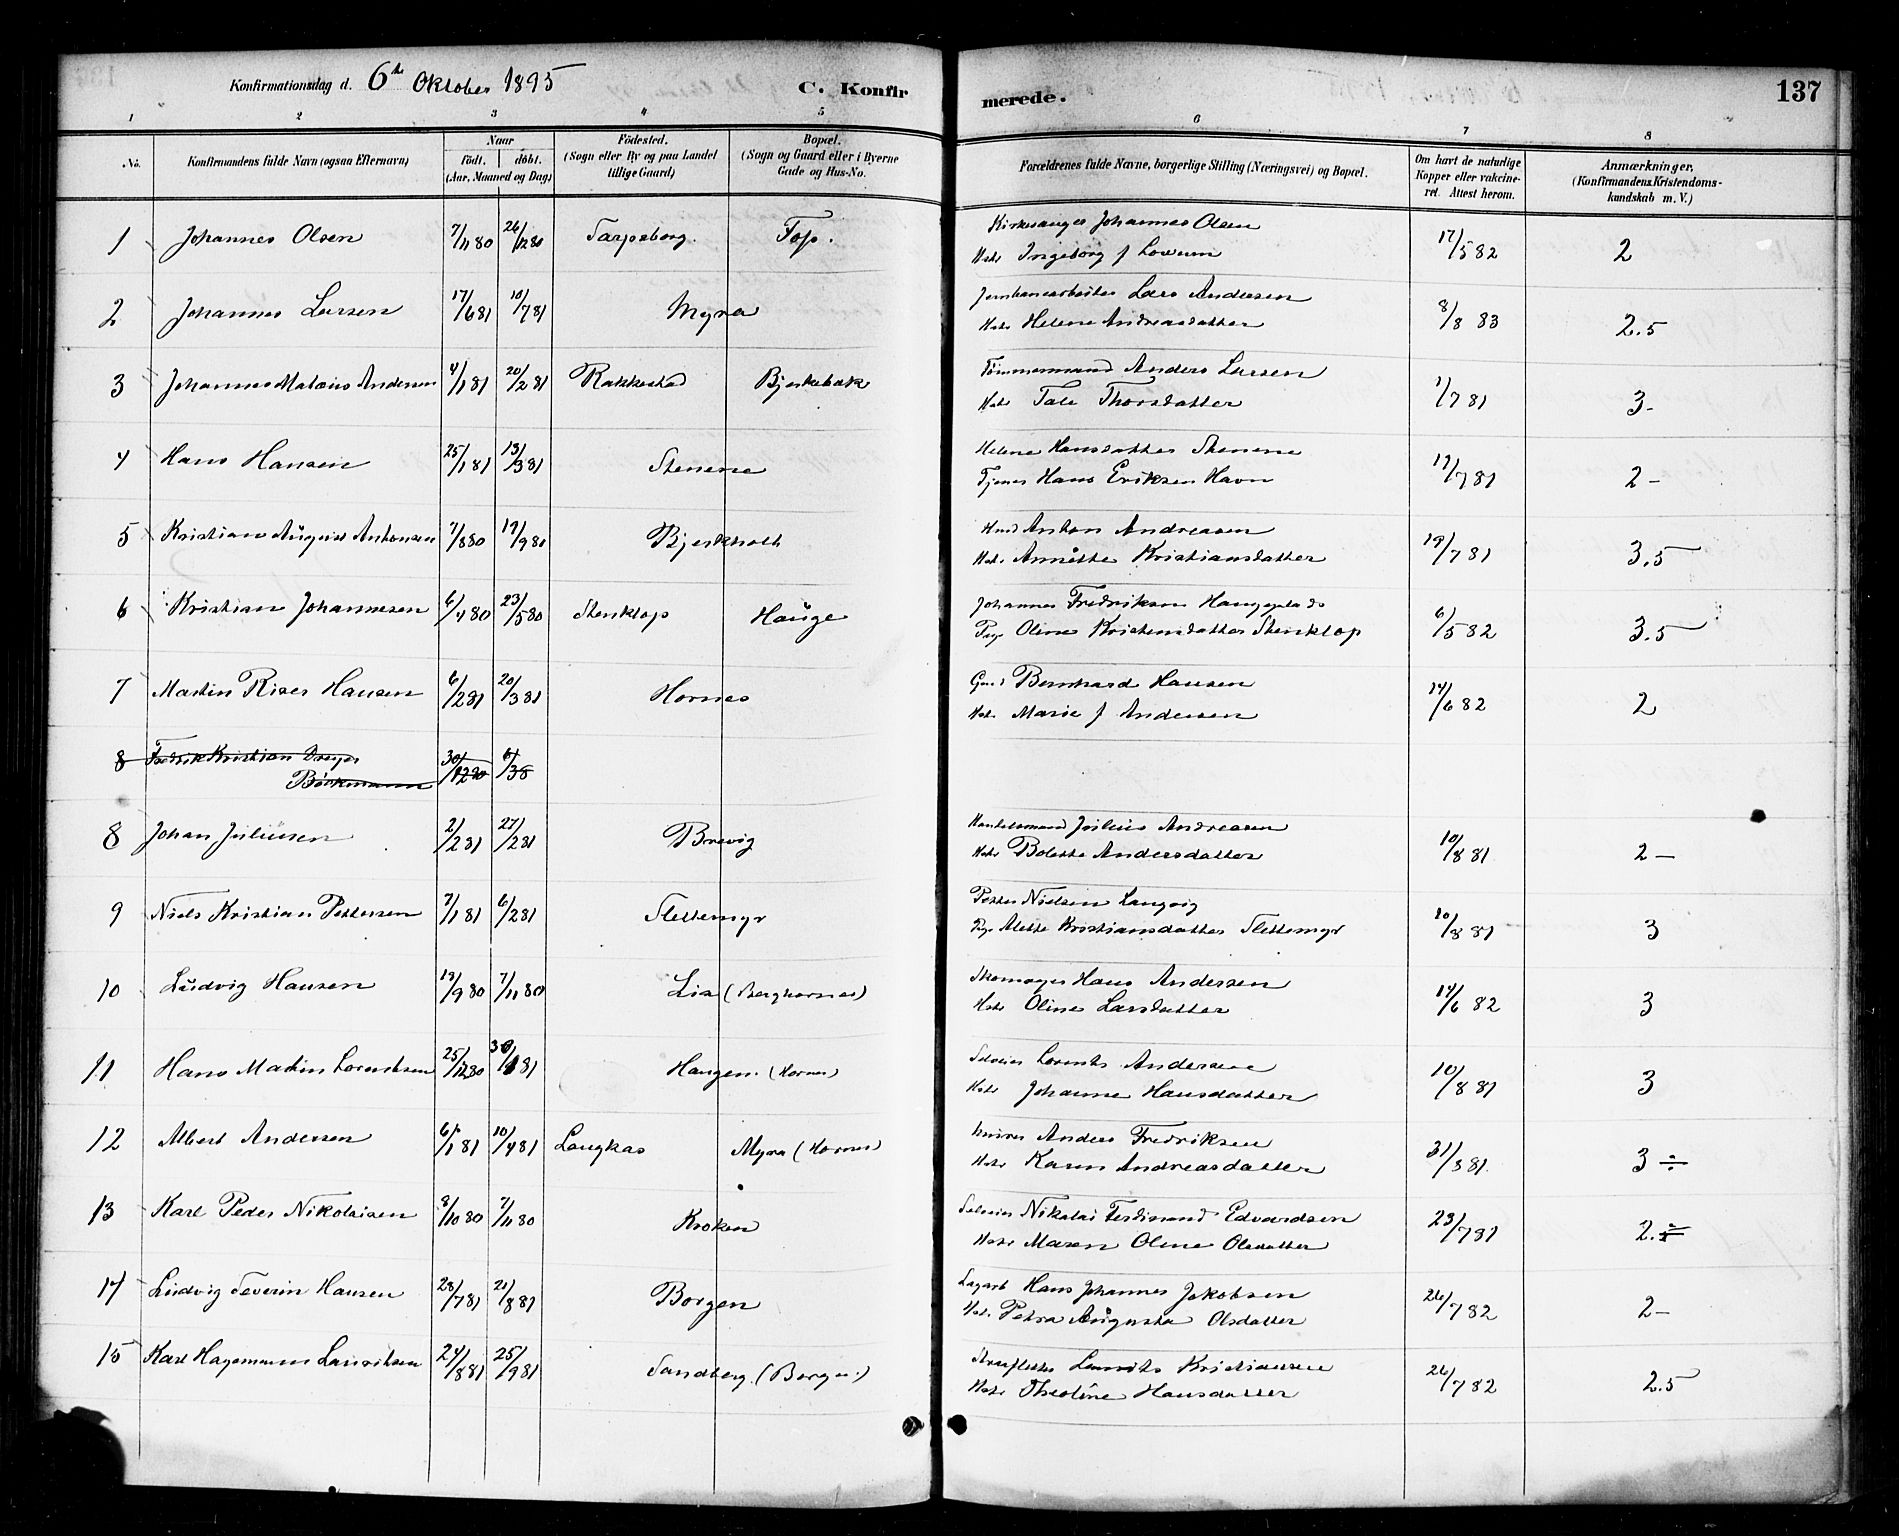 Konfirmationsdag d. 6te Oktober 1895 C. Konfirmerede. 137
1 2 3 4 5 6 7 8
No. Konfirmandens fulde Navn (ogsaa Efternavn) Naar födt. döbt. (Aar, Maaned og Dag) Födested. (Sogn eller By og paa Landet tillige Gaard) Bopæl. (Sogn og Gaard eller i Byerne Gade og Hus-No. Forældrenes fulde Navne, borgerlige Stilling (Næringsvei) og Bopæl. Om havt de naturlige Kopper eller vakcineret. Attest herom. Anmærkninger, (Konfirmandens Kristendomskundskab m. V.)
1 Johannes Olsen 7/11 80 26/12 80 Sarpsborg. Top. Kirkesanger Johannes Olsen 17/5 82 2
Hst. Ingeborg f
2 Johannes Larsen 17/6 81 10/7 81 Myra Jernbanearbeider Lars Andersen 8/8 83 2.5
Hst. Helene Andreasdatter
3 Johannes Matæus Andersen 4/1 81 20/2 81 Rakkestad Bjerkebæk Tömmermand Anders Larsen 1/7 81 3-
Hst. Tale Thorsdatter
4 Hans Hansen 25/1 81 13/3 81 Stenene Helene Hansdatter Stenene 19/7 81 2-
Tjener Hans Eriksen Havn
5 Kristian August Antonsen 7/8 80 19/9 80 Bjerkholt Hmd Anton Andreasen 19/7 81 3.5
Hst. Annette Kristiansdatter
6 Kristian Johannesen 6/4 80 23/5 80 Stenklop Hauge Johannes Fredriksen 6/5 82 3.5
Pige Oline Kristensdatter Stenklop
7 Martin Riser Hansen 6/2 81 20/3 81 Hornes Gmd Bernhard Hansen 14/6 82 2
Hst. Marie f Andersen
8 Fredrik Kristian Dreyer 30/12 80 6/3 8
Böckmann
8 Johan Juliusen 2/2 81 27/2 81 Brevig Handelsmand Julius Andreasen 10/8 81 2-
Hst. Bolette Andersdatter
9 Niels Kristian Pettersen 7/1 81 6/2 81 Slettemyr Petter Nielsen Langvig 10/8 81 3
Pige Alette Kristiansdatter Slettemyr
10 Ludvig Hansen 13/9 80 7/11 80 Lia (Berghornes) Skomager Hans Andersen 14/6 82 3
Hst. Oline Larsdatter
11 Hans Martin Lorentsen 25/12 80 30/1 81 Haugen (Hornes) Selveier Lorents Andersen 10/8 81 3
Hst. Johanne Hansdatter
12 Albert Andersen 6/1 81 10/4 81 Langkas Myra (Hornes) Anders Fredriksen 31/3 81 3 ÷
Hst. Karen Andreasdatter
13 Karl Peder Nikolaisen 8/10 80 7/11 80 Kroken Selveier Nikolai Ferdinand Edvardsen 23/7 81 2.÷
Hst. Maren Oline Olsdatter
14 Ludvig Severin Hansen 28/7 81 21/8 81 Borgen Hans Johannes Jakobsen 26/7 82 2-
Hst. Petra Augusta Olsdatter
15 Karl Hagemann Lauritsen 24/8 81 25/9 81 Sandberg (Borgen) Laurits Kristiansen 26/7 82 2.5
Hst. Theoline Hansdatter